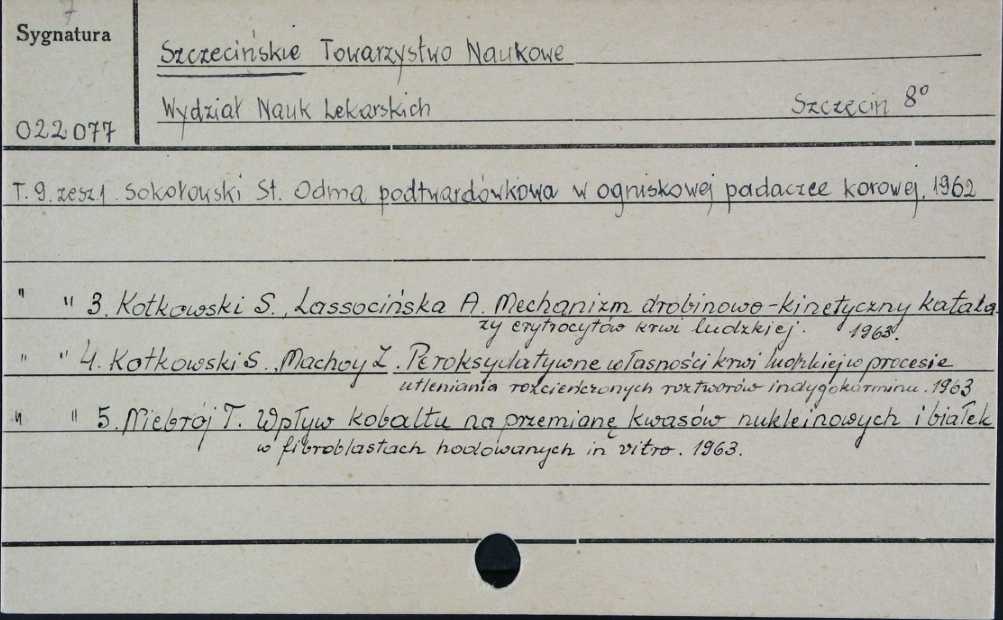 7
Sygnatura
Szczecińskie Towarzystwo Naukowe
Wydział Nauk Lekarskich Szczecin 8°
022077
T. 9. zesz. 1. Sokołowski St. Odma podtwardówkowa w ogniskowej padaczce korowej. 1962
" " 3. Kotkowski S., Lassocińska A. Mechanizm drobinowo-kinetyczny katala-
zy erytrocytów krwi ludzkiej. 1963.
" " 4. Kotkowski S., Machoy Z. Peroksydatywne własności krwi ludzkiej w procesie
utleniania rozcieńczonych roztworów indygokarminu. 1963
" " 5. Niebrój T. Wpływ kobaltu na przemianę kwasów nukleinowych i białek
w fibroblastach hodowanych in vitro. 1963.